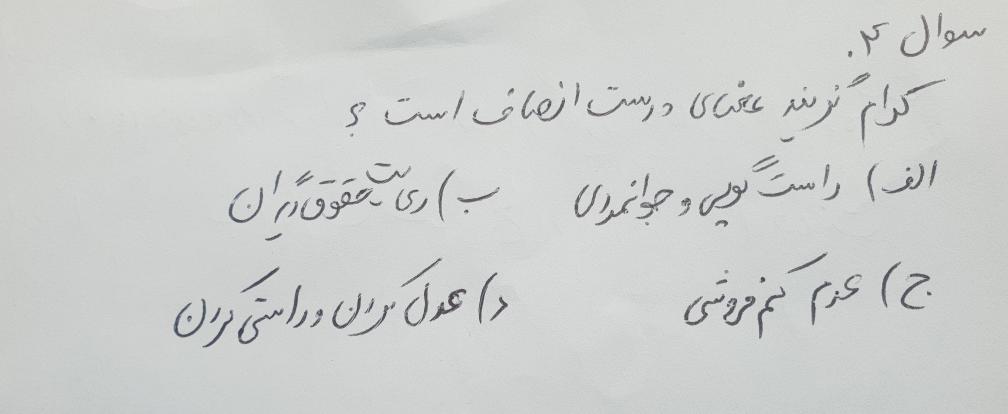 سوال ۴.
کدام گزینه معنای درست انصاف است ؟
الف) راست گویی و جوانمردی ب) رعایت حقوق دیگران
ج) عدم کم فروشی د) عدل کردن و راستی کردن